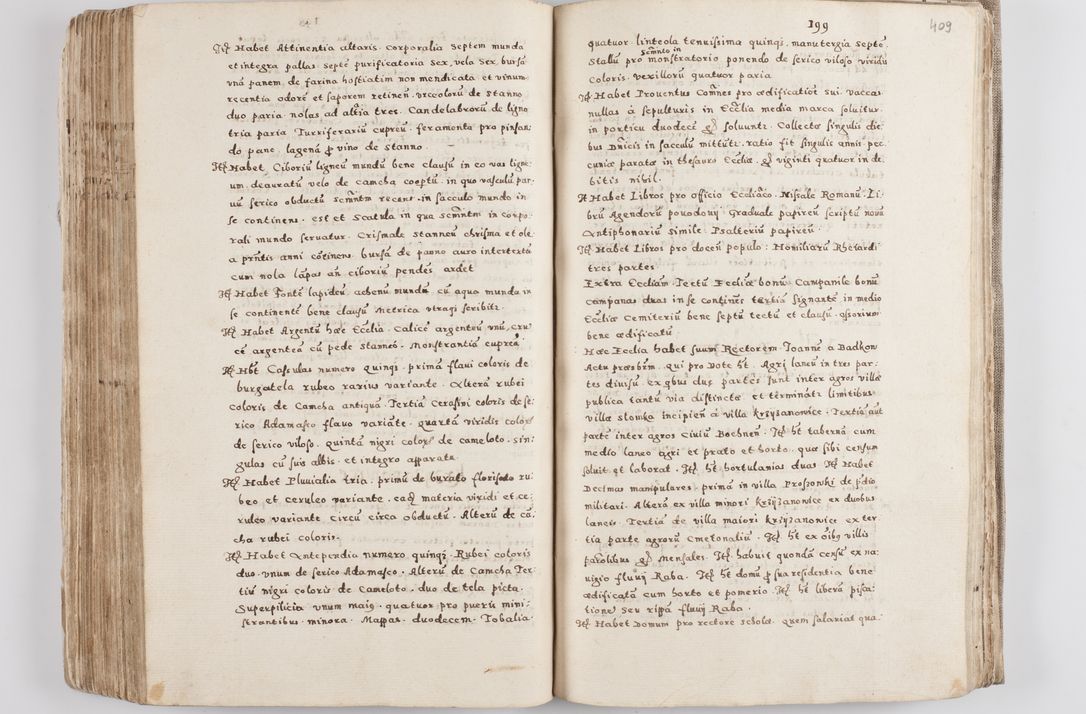 Itē Habet Attinentia altaris. corporalia septem munda
et integra pallas septē purificatoria sex, vela sex. bursā
vnā panem, de farina hostiatim non mendicata et vinum
recentia odorē et saporem retinēn. vrceolorū de stanno
duo paria. nolas ad altia tres. Candelabrorū de ligno
tria paria Turriferariū cupreū. feramonta pro pinsan:
do pane. lagenā p vino de stanno.
Itē Habet Ciboriū ligneū mundū bene clausū in eo vas ligne:
um deauratū velo de camcha cooptū. in quo vasculū par:
uū serico obductū scmntm recens. in sacculo mundo in
se continens. est et scatula in qua scmntm in corpo:
rali mundo seruatur. Crismale stanneū chrisma et ole:
a prntis anni cōtinens. bursā de panno auro intertextā
cum nola lāpas an̄ ciboriū pendēs ardet
Itē Habet fontē lapideū achenū mundū cū aqua munda in
se continentē bene clausū metrica vtraqȝ scribitr.
Itē Habet Argentū hæc Ecclia. Calicē argenteū vnū, cru:
cē argenteā cū pede stanneo. Monstrantiā cupreā
Itē Hbt Casulas numero quinqȝ. primā flaui coloris de
burgatela rubeo rarius variante. Alterā rubei
coloris de Camcha antiquā. Tertiā Cerasini coloris de se:
rico Adamasco flauo variāte. quartā viridis colors
de serico viloso. quintā nigri colors de cameloto. sin:
gulas cū suis albis. et integro apparatu
Itē Habet Pluuialia tria. primū de burato florisato ru:
beo et ceruleo variante. eadē materia viridi et ce:
ruleo variante circū circa obductū. Alterū de cā:
cha rubei coloris.
Itē Habet Antependia numero quinqȝ. Rubei coloris
duo. vnum de serico Adamasco. Alterū de Camcha Ter:
tiū nigri coloris de Cameloto. duo de tela picta.
Superpilicia vnum maiȝ. quatuor pro puerū mini:
strantibus. minora. Mappas. duodecem. Tobalia
199
409
quatuor. linteola tenuissima quinqȝ. manutergia septē
Scmnto in
Stallū pro monstratorio ponendo de serico viloso viridis
coloris. vexillorū quatuor paria
Itē Habet Prouentus Comnes pro ædificatiōe sui. vaccas
nullas à sepulturis in Ecclia media marca soluitur.
in porticu duodecē gȓ soluuntr. Collectæ singulis die:
bus Dnicis in sacculū mittūtr. ratio fit singulis annis. pec:
cuniæ paratæ in thesauro Ecclæ. gȓ viginti quatuor in de:
bitis nihil.
Itē Habet Libros pro officio Eccliāco. Missale Romanū. Li:
brū Agendorū pouodouij Graduale papireū scriptū nouū
Antiphonariū simile. Psalteriū papireū.
Itē Habet Libros pro docēn populo: Homiliarū Rhetardi
tres partes
Extra Eccliam Tectū Eccliæ bonū Campanile bonū
campanas duas in se continēs tertiā signantē in medio
Eccliæ Cemiteriū bene septū tectū et clausū. ossorium
bene ædificatū.
Hæc Ecclia habet suum Rectorem Joannē à Badkow
Actu præsbrm. qui pro Dote ht. Agri laneū in tres par:
tes diuisū. ex qbus duę partes sunt inter agros villæ
publica tantū via distinctæ. et terminātr limitibus
villæ slomka incipien̄ à villa krzyzanowice. Tertiā aūt
partē inter agros Ciuiū Bochnen. Itē ht tabernā cum
medio laneo agri et prato et horto. quæ sibi censum
soluit et laborat. Itē ht hortulanias duas Itē Habet
Decimas manipulares. primā in villa Proszonki de pdio
militari. Alterā ex villa minori krzyzanowice ex duobus
laneis. Tertiā de villa maiori krzyzanowice ex ter:
tia parte agrorū Cmetonaliū. Itē ht ex oibȝ villis
parolibus gȓ mensales. Itē habuit quondā censū ex na:
uigio fluuij Raba. Itē ht domū p sua residentia bene
ædificatā cum horto et pomerio. Itē ht liberā pisca:
tionē seu rippā fluuij Raba.
Itē Habet Domum pro rectore scholæ. Quem salariat qua: